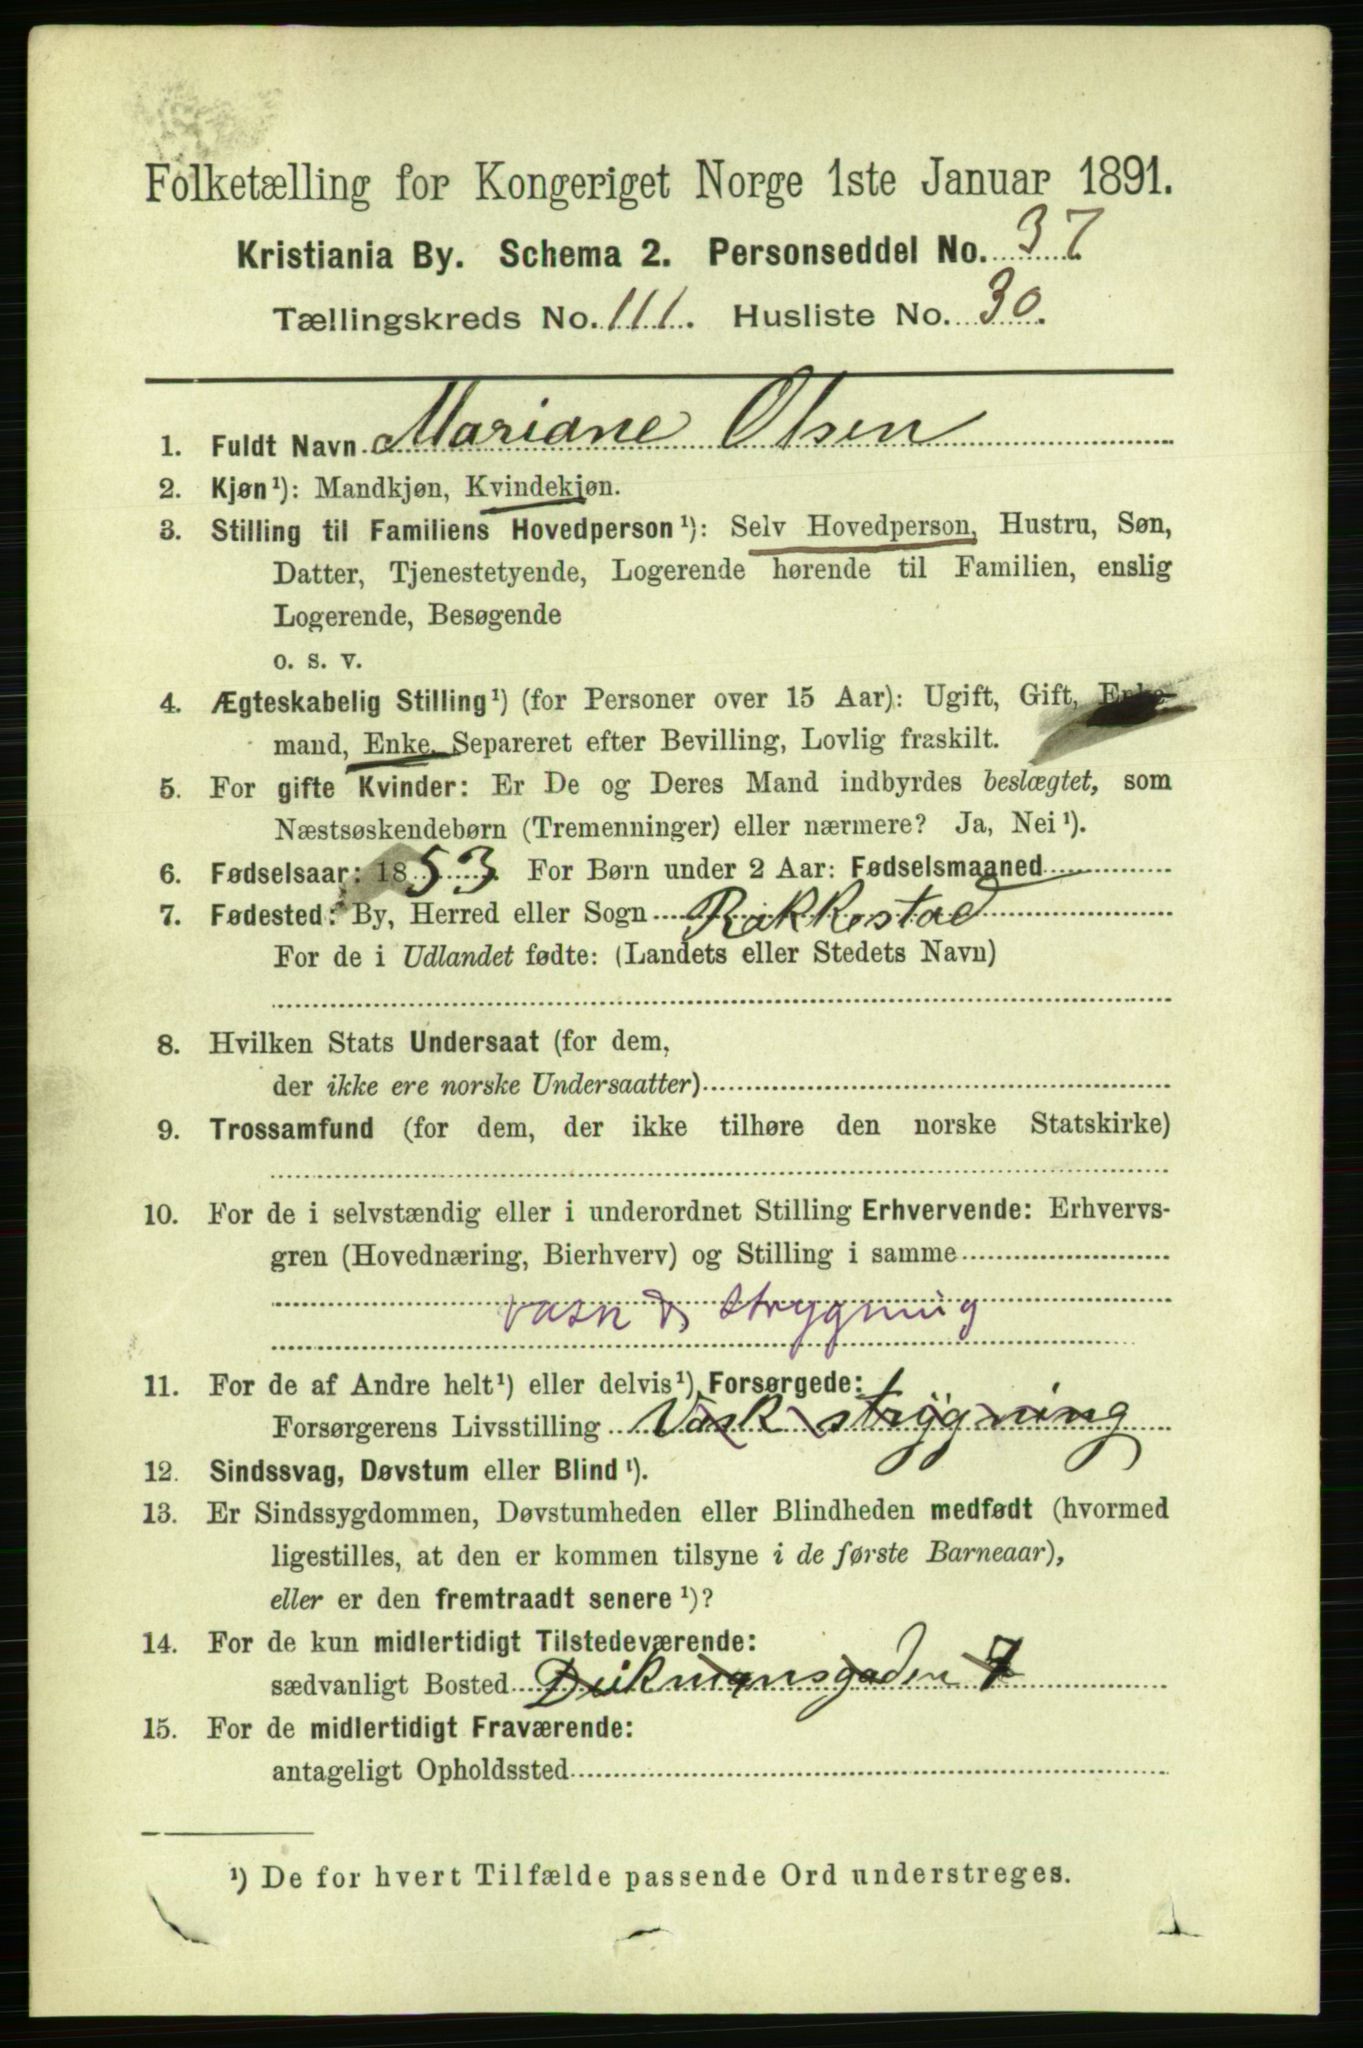 Folketælling for Kongeriget Norge 1ste Januar 1891.
Kristiania By. Schema 2. Personseddel No. 37
Tællingskreds No. 111. Husliste No. 30.
1. Fuldt Navn Mariane Olsen
2. Kjøn¹): Mandkjøn, Kvindekjøn.
3. Stilling til Familiens Hovedperson¹): Selv Hovedperson, Hustru, Søn,
Datter, Tjenestetyende, Logerende hørende til Familien, enslig
Logerende, Besøgende
o. s. v.
4. Ægteskabelig Stilling¹) (for Personer over 15 Aar): Ugift, Gift, Enke-
mand, Enke, Separeret efter Bevilling, Lovlig fraskilt.
5. For gifte Kvinder: Er De og Deres Mand indbyrdes beslægtet, som
Næstsøskendebørn (Tremenninger) eller nærmere? Ja, Nei¹).
6. Fødselsaar: 1853. For Børn under 2 Aar: Fødselsmaaned
7. Fødested: By, Herred eller Sogn Rakkestad
For de i Udlandet fødte: (Landets eller Stedets Navn)
8. Hvilken Stats Undersaat (for dem,
der ikke ere norske Undersaatter)
9. Trossamfund (for dem, der ikke tilhøre den norske Statskirke)
10. For de i selvstændig eller i underordnet Stilling Erhvervende: Erhvervs-
gren (Hovednæring, Bierhverv) og Stilling i samme
Vask & Strygning
11. For de af Andre helt¹) eller delvis¹) Forsørgede:
Forsørgerens Livsstilling Vask strygning
12. Sindssvag, Døvstum eller Blind¹).
13. Er Sindssygdommen, Døvstumheden eller Blindheden medfødt (hvormed
ligestilles, at den er kommen tilsyne i de første Barneaar),
eller er den fremtraadt senere¹)?
14. For de kun midlertidigt Tilstedeværende:
sædvanligt Bosted Deikmansgaden 7
15. For de midlertidigt Fraværende:
antageligt Opholdssted
¹) De for hvert Tilfælde passende Ord understreges.